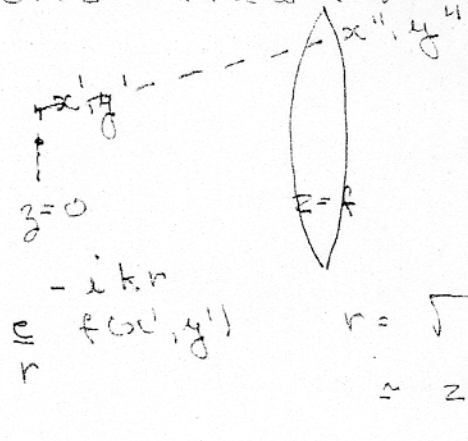 x'', y''
x', y'
z=0
z=f
e^{-ikr}/r f(x', y')
r = √
≃ z